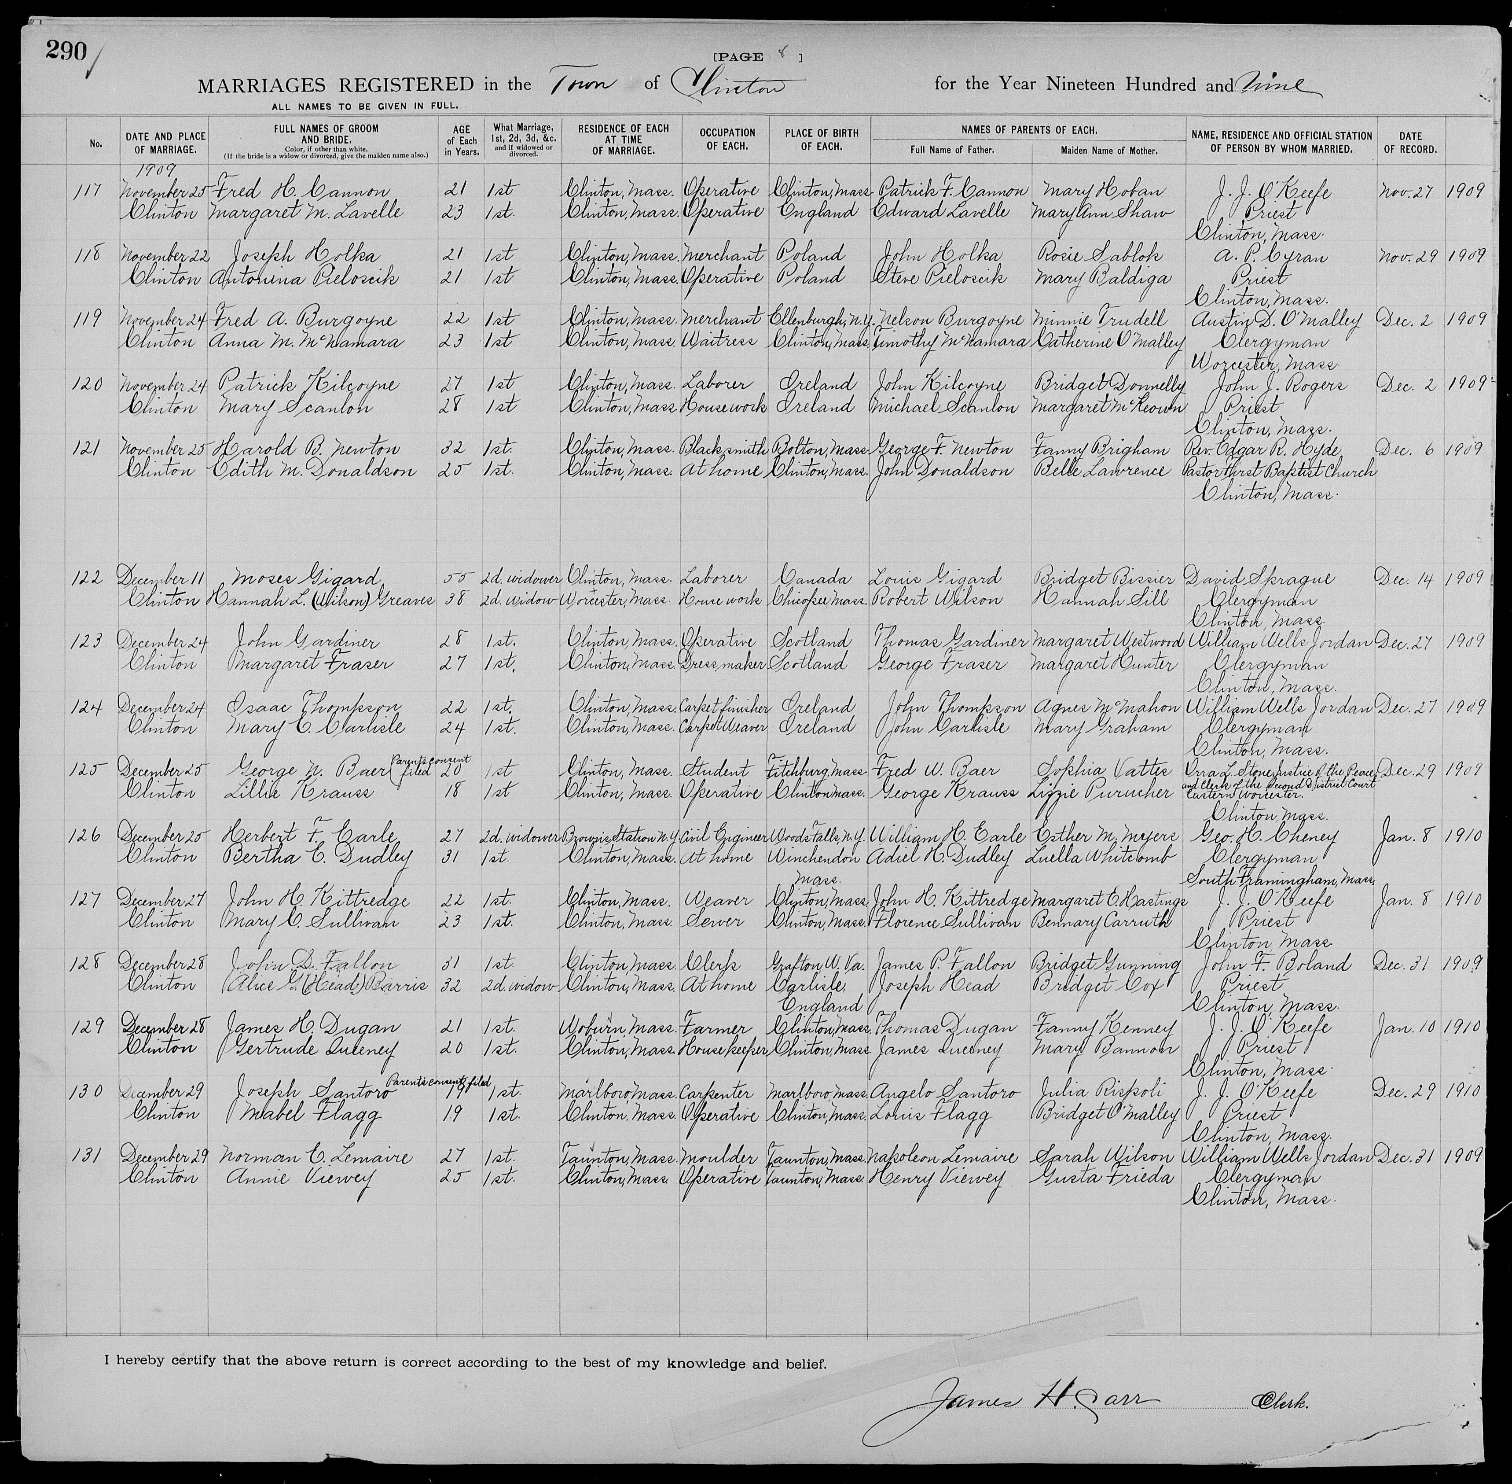 290
[PAGE 8 ]
MARRIAGES REGISTERED in the Town of Clinton for the Year Nineteen Hundred and Nine
ALL NAMES TO BE GIVEN IN FULL.
No. DATE AND PLACE OF MARRIAGE. FULL NAMES OF GROOM AND BRIDE. Color, if other than white. (If the bride is a widow or divorced, give the maiden name also.) AGE of Each in Years. What Marriage, 1st, 2d, 3d, &c. and if widowed or divorced. RESIDENCE OF EACH AT TIME OF MARRIAGE. OCCUPATION OF EACH. PLACE OF BIRTH OF EACH. NAMES OF PARENTS OF EACH. Full Name of Father. Maiden Name of Mother. NAME, RESIDENCE AND OFFICIAL STATION OF PERSON BY WHOM MARRIED. DATE OF RECORD.
1909
117 November 25 Fred H. Cannon 21 1st Clinton, Mass. Operative Clinton, Mass Patrick F. Cannon Mary Hoban J. J. O'Keefe Nov. 27 1909
Clinton Margaret M. Lavelle 23 1st. Clinton, Mass. Operative England Edward Lavelle Mary Ann Shaw Priest
Clinton, Mass.
118 November 22 Joseph Holka 21 1st Clinton, Mass. Merchant Poland John Holka Rosie Sablok A. P. Cyran Nov. 29 1909
Clinton Antonina Pieloscik 21 1st Clinton, Mass. Operative Poland Steve Pieloscik Mary Baldiga Priest
Clinton, Mass.
119 November 24 Fred A. Burgoyne 22 1st Clinton, Mass. Merchant Ellenburgh, N.Y. Nelson Burgoyne Minnie Trudell Austin D. O'Malley Dec. 2 1909
Clinton Anna M. McNamara 23 1st Clinton, Mass. Waitress Clinton, Mass. Timothy McNamara Catherine O'Malley Clergyman
Worcester, Mass
120 November 24 Patrick Kilcoyne 27 1st Clinton, Mass. Laborer Ireland John Kilcoyne Bridget Donnelly John J. Rogers Dec. 2 1909
Clinton Mary Scanlon 28 1st Clinton, Mass. Housework Ireland Michael Scanlon Margaret McKeown Priest
Clinton, Mass.
121 November 25 Harold B. Newton 32 1st. Clinton, Mass. Blacksmith Bolton, Mass. George F. Newton Fanny Brigham Rev. Edgar R. Hyde Dec. 6 1909
Clinton Edith M. Donaldson 25 1st. Clinton, Mass. At home Clinton, Mass. John Donaldson Belle Lawrence Pastor First Baptist Church
Clinton, Mass.
122 December 11 Moses Gigard 55 2d. widower Clinton, Mass. Laborer Canada Louis Gigard Bridget Bissier David Sprague Dec. 14 1909
Clinton Hannah L. (Wilson) Greaves 38 2d. widow Worcester, Mass. Housework Chicopee Mass. Robert Wilson Hannah Sill Clergyman
Clinton, Mass
123 December 24 John Gardiner 28 1st. Clinton Mass. Operative Scotland Thomas Gardiner Margaret Westwood William Wells Jordan Dec. 27 1909
Clinton Margaret Fraser 27 1st. Clinton, Mass. Dressmaker Scotland George Fraser Margaret Hunter Clergyman
Clinton, Mass.
124 December 24 Isaac Thompson 22 1st. Clinton, Mass. Carpet finisher Ireland John Thompson Agnes McMahon William Wells Jordan Dec. 27 1909
Clinton Mary E. Carlisle 24 1st. Clinton, Mass. Carpet Weaver Ireland John Carlisle Mary Graham Clergyman
Clinton, Mass.
125 December 25 George N. Baer Parents consent filed 20 1st Clinton, Mass Student Fitchburg, Mass Fred W. Baer Sophia Vatter Orra L. Stone, Justice of the Peace Dec. 29 1909
Clinton Lillie Krauss 18 1st Clinton, Mass. Operative Clinton Mass. George Krauss Lizzie Purucher and Clerk of the Second District Court
Eastern Worcester.
Clinton Mass.
126 December 25 Herbert F. Earle 27 2d. widower Browns Station N.Y. Civil Engineer Woods Falls, N.Y. William H. Earle Esther M. Myers Geo. H. Cheney Jan. 8 1910
Clinton Bertha E. Dudley 31 1st. Clinton, Mass. At home Winchendon Adiel H. Dudley Luella Whitcomb Clergyman
Mass. South Framingham, Mass.
127 December 27 John H. Kittredge 22 1st. Clinton, Mass. Weaver Clinton, Mass. John H. Kittredge Margaret E. Hastings J. J. O'Keefe Jan. 8 1910
Clinton Mary E. Sullivan 23 1st. Clinton, Mass Sewer Clinton, Mass. Florence Sullivan Bennary Carruth Priest
Clinton Mass
128 December 28 John D. Fallon 31 1st. Clinton Mass. Clerk Grafton W. Va. James P. Fallon Bridget Gunning John F. Boland Dec. 31 1909
Clinton Alice G. (Head) Barris 32 2d. widow Clinton, Mass. At home Carlisle Joseph Head Bridget Cox Priest
England Clinton, Mass.
129 December 28 James H. Dugan 21 1st. Woburn, Mass. Farmer Clinton, Mass. Thomas Dugan Fanny Kenney J. J. O'Keefe Jan. 10 1910
Clinton Gertrude Queeney 20 1st. Clinton, Mass. Housekeeper Clinton, Mass James Queeney Mary Bannon Priest
Clinton, Mass.
130 December 29 Joseph Santoro Parents consent filed 19 1st. Marlboro Mass. Carpenter Marlboro Mass. Angelo Santoro Julia Rispoli J. J. O'Keefe Dec. 29 1910
Clinton Mabel Flagg 19 1st. Clinton, Mass. Operative Clinton, Mass. Louis Flagg Bridget O'Malley Priest
Clinton, Mass.
131 December 29 Norman E. Lemaire 27 1st. Taunton, Mass. Moulder Taunton, Mass. Napoleon Lemaire Sarah Wilson William Wells Jordan Dec. 31 1909
Clinton Annie Viewey 25 1st. Clinton, Mass. Operative Taunton, Mass. Henry Viewey Gusta Frieda Clergyman
Clinton, Mass.
I hereby certify that the above return is correct according to the best of my knowledge and belief.
James H. Carr Clerk.